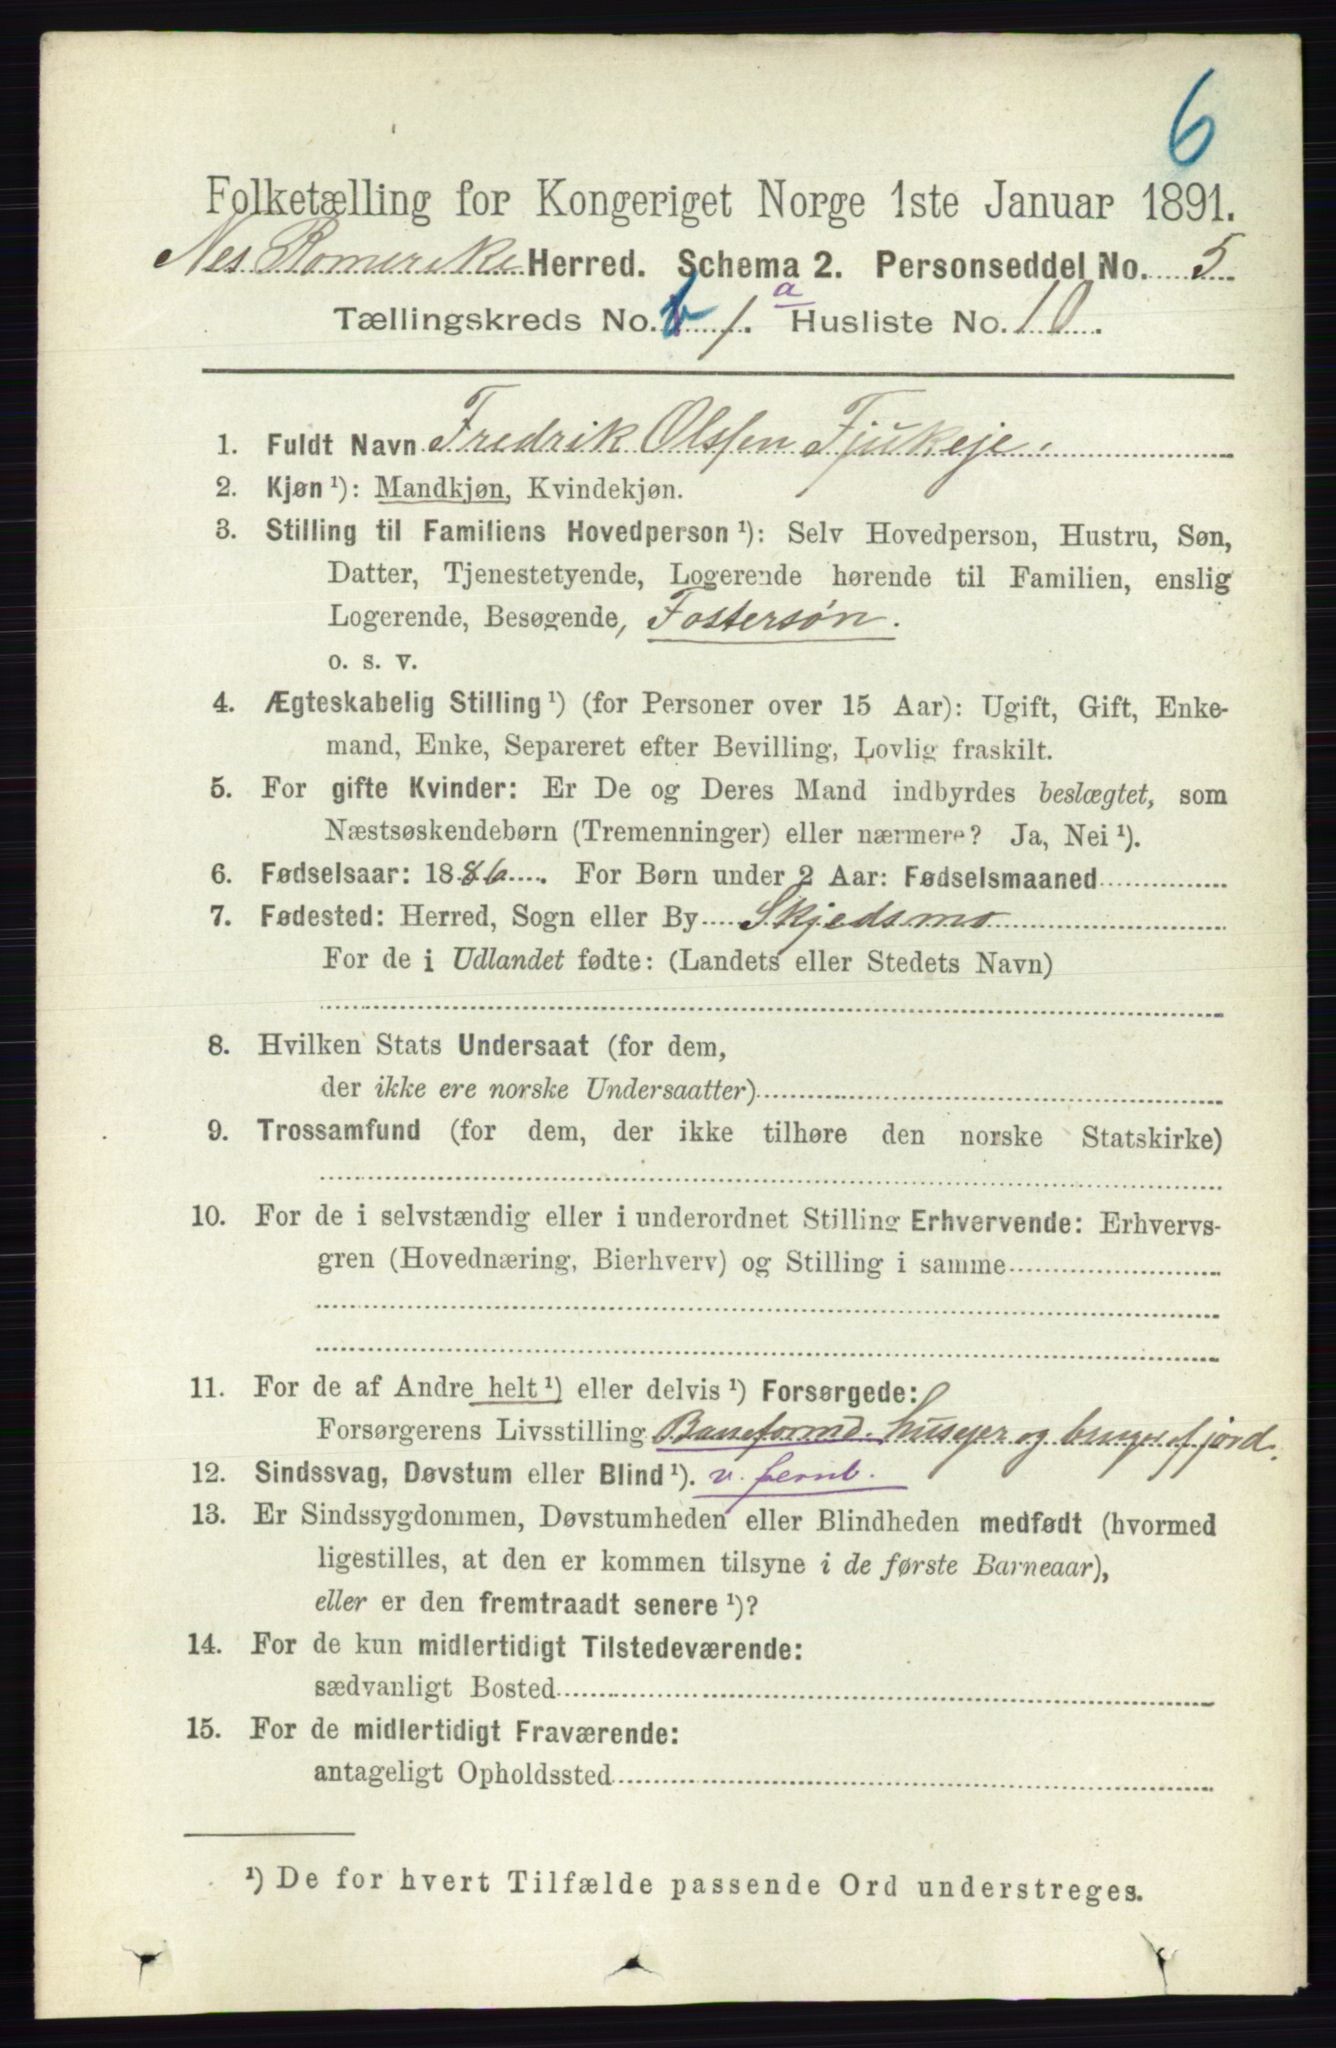 6
Folketælling for Kongeriget Norge 1ste Januar 1891.
Nes Romerike Herred. Schema 2. Personseddel No. 5
a
Tællingskreds No. 1. Husliste No. 10.
1. Fuldt Navn Fredrik Olssen Fjukeje.
2. Kjøn ¹): Mandkjøn, Kvindekjøn.
3. Stilling til Familiens Hovedperson ¹): Selv Hovedperson, Hustru, Søn,
Datter, Tjenestetyende, Logerende hørende til Familien, enslig
Logerende, Besøgende, Fostersøn.
o. s. v.
4. Ægteskabelig Stilling ¹) (for Personer over 15 Aar): Ugift, Gift, Enke-
mand, Enke, Separeret efter Bevilling, Lovlig fraskilt.
5. For gifte Kvinder: Er De og Deres Mand indbyrdes beslægtet, som
Næstsøskendebørn (Tremenninger) eller nærmere? Ja, Nei ¹).
6. Fødselsaar: 1886. For Børn under 2 Aar: Fødselsmaaned
7. Fødested: Herred, Sogn eller By Skjedsmo
For de i Udlandet fødte: (Landets eller Stedets Navn)
8. Hvilken Stats Undersaat (for dem,
der ikke ere norske Undersaatter)
9. Trossamfund (for dem, der ikke tilhøre den norske Statskirke)
10. For de i selvstændig eller i underordnet Stilling Erhvervende: Erhvervs-
gren (Hovednæring, Bierhverv) og Stilling i samme
11. For de af Andre helt ¹) eller delvis ¹) Forsørgede:
Forsørgerens Livsstilling Baneformd. husejer og bruger af jord.
12. Sindssvag, Døvstum eller Blind ¹). v. jernb.
13. Er Sindssygdommen, Døvstumheden eller Blindheden medfødt (hvormed
ligestilles, at den er kommen tilsyne i de første Barneaar),
eller er den fremtraadt senere ¹)?
14. For de kun midlertidigt Tilstedeværende:
sædvanligt Bosted
15. For de midlertidigt Fraværende:
antageligt Opholdssted
¹) De for hvert Tilfælde passende Ord understreges.